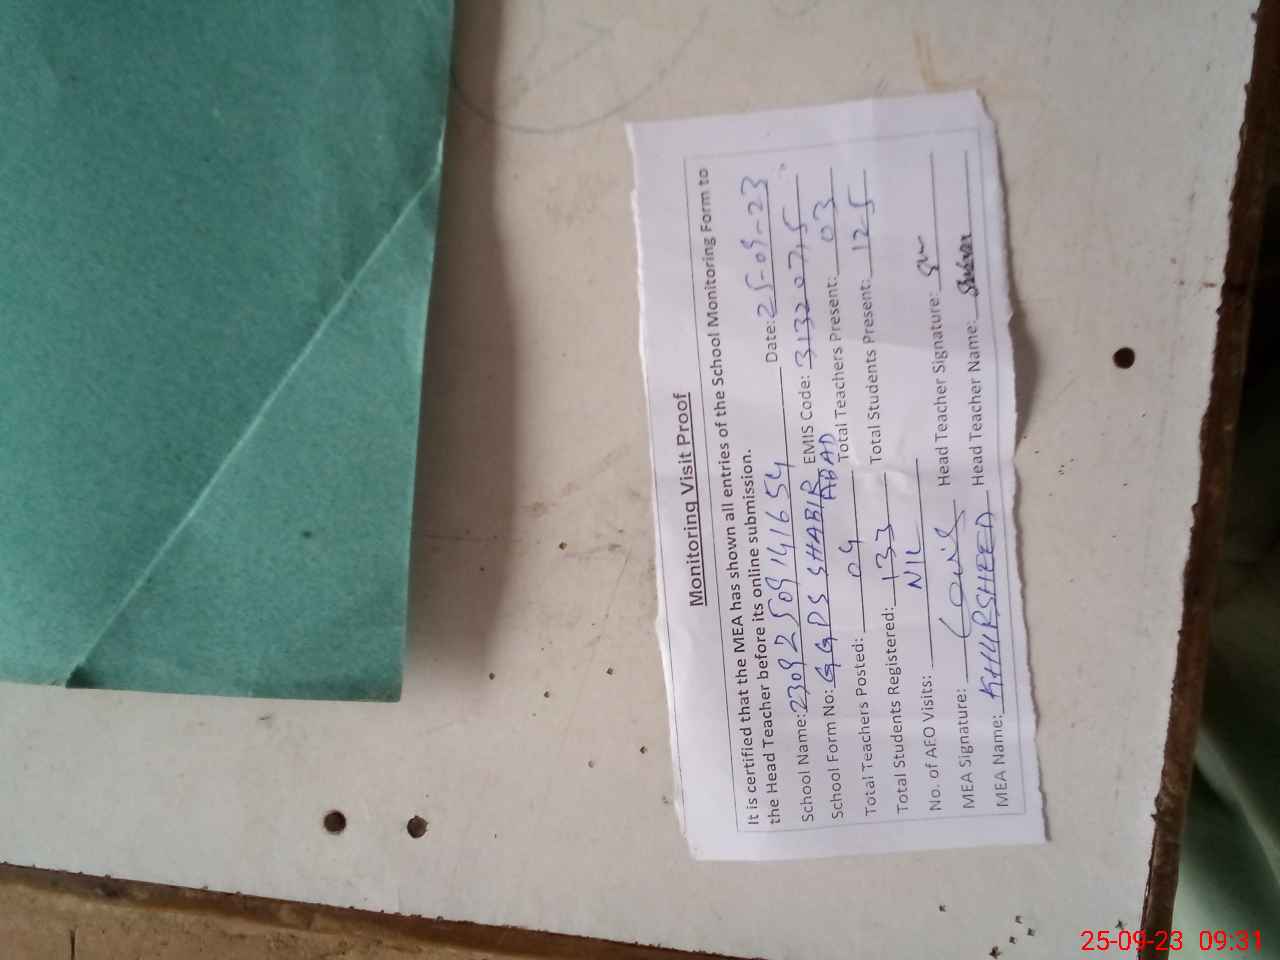 Monitoring Visit Proof
It is certified that the MEA has shown all entries of the School Monitoring Form to
the Head Teacher before its online submission.
School Name: 23092509141654 Date: 25-09-23
School Form No: GGPS SHABIR ABAD EMIS Code: 31320715
Total Teachers Posted: 04 Total Teachers Present: 03
Total Students Registered: 133 Total Students Present: 125
No. of AEO Visits: NIL
MEA Signature: Head Teacher Signature:
MEA Name: KHURSHEED Head Teacher Name:
25-09-23 09:31